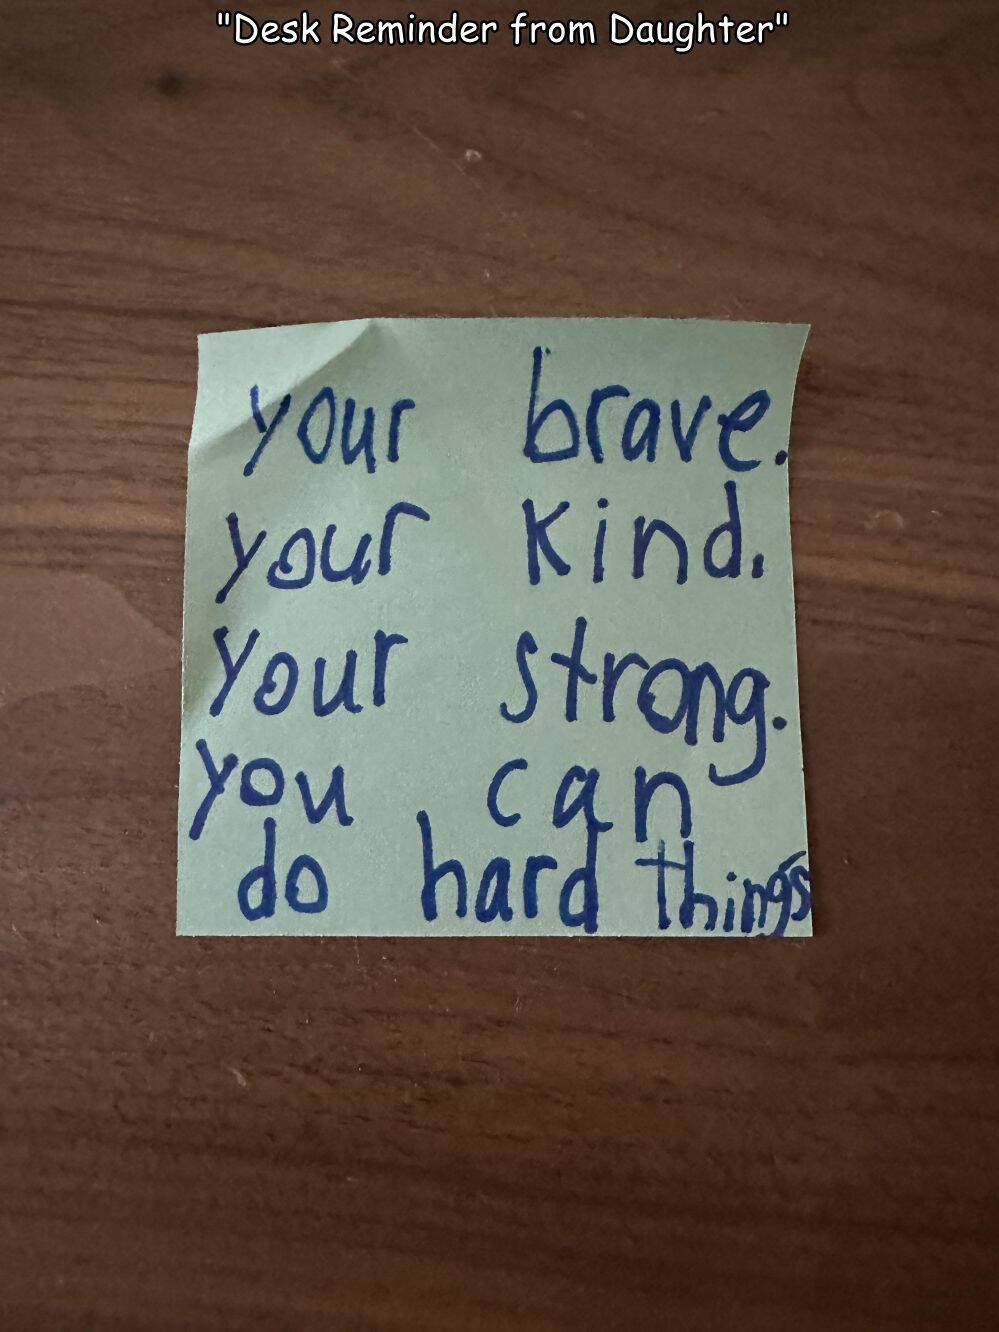 "Desk Reminder from Daughter"
your brave.
your kind.
your strong.
you can
do hard things